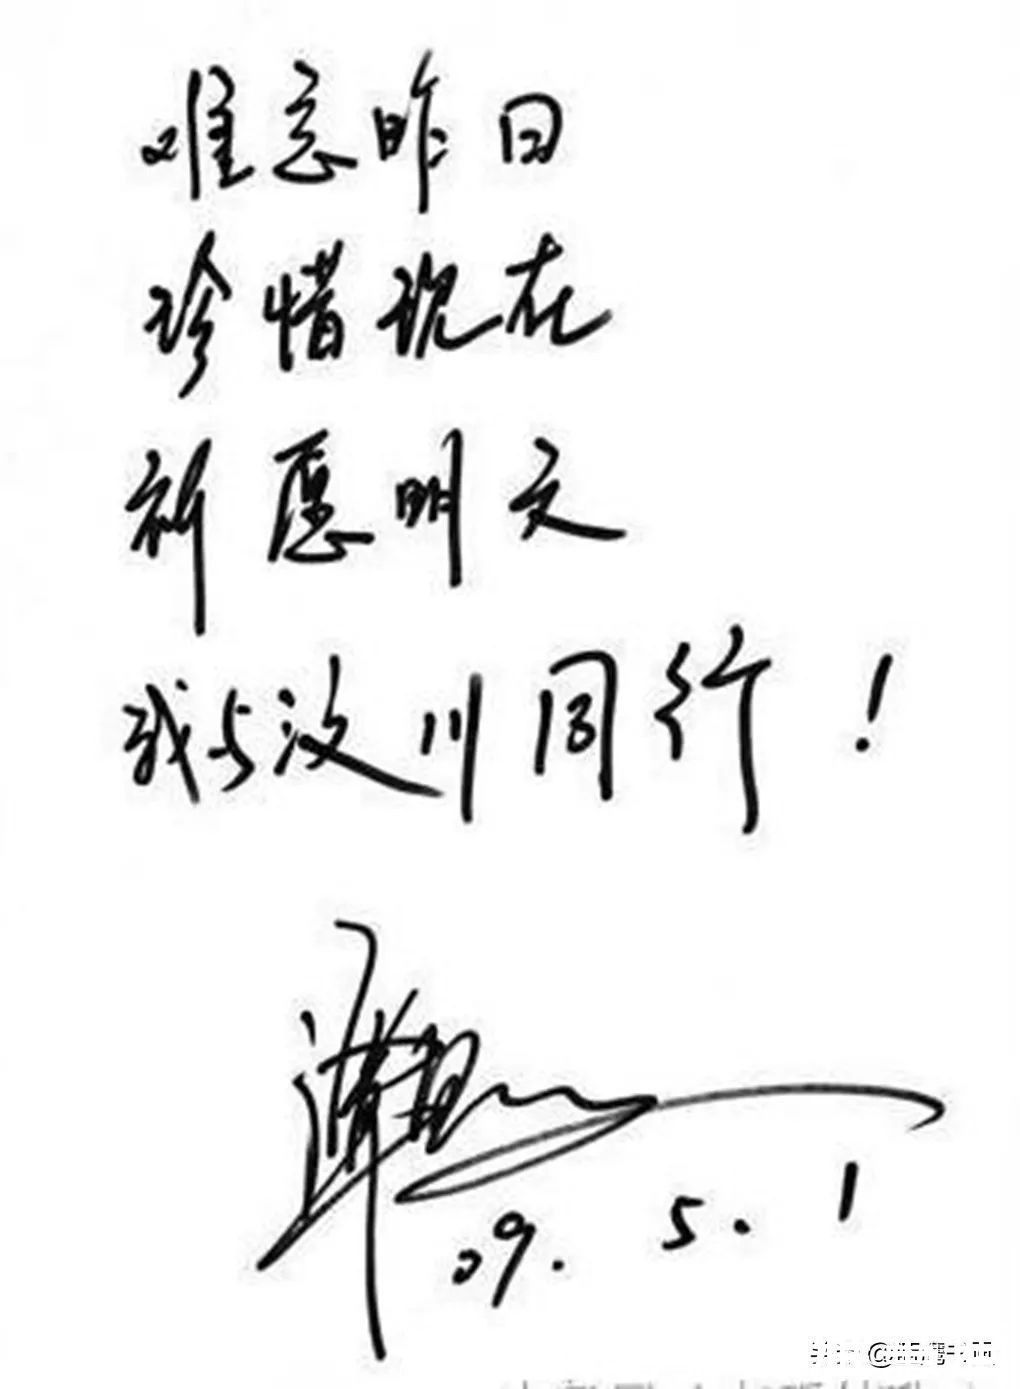 难忘昨日
珍惜现在
祈愿明天
我与汶川同行！
09.5.1